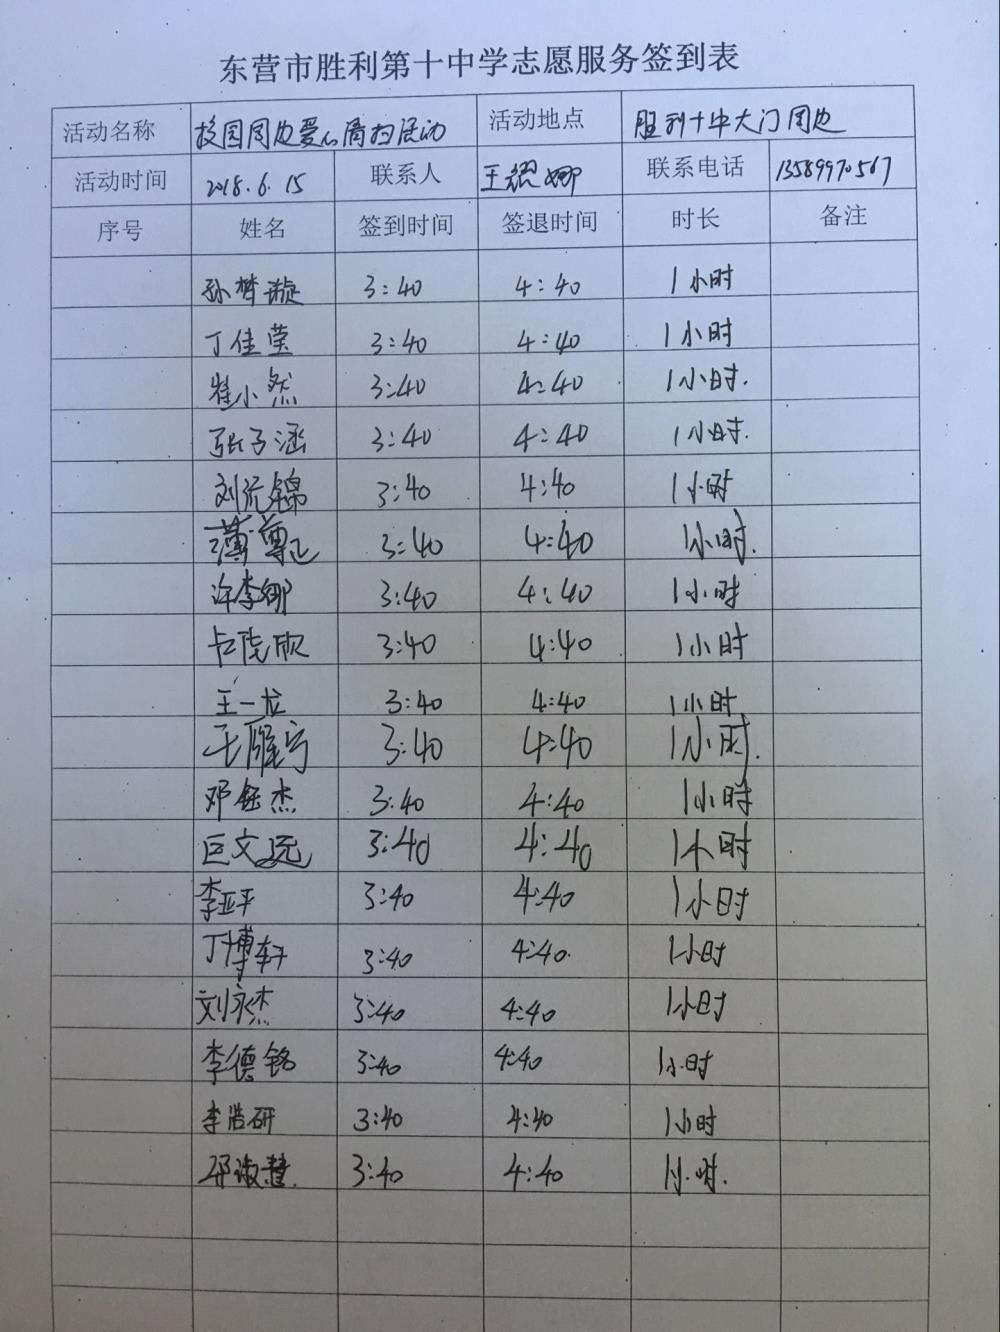 东营市胜利第十中学志愿服务签到表
活动名称 校园周边爱心清扫活动 活动地点 胜利十中大门周边
活动时间 2018.6.15 联系人 王耀娜 联系电话 13589970567
序号 姓名 签到时间 签退时间 时长 备注
孙梦璇 3:40 4:40 1小时
丁佳莹 3:40 4:40 1小时
崔小然 3:40 4:40 1小时.
张子涵 3:40 4:40 1小时.
刘沅锦 3:40 4:40 1小时
3:40 4:40 1小时.
许李娜 3:40 4:40 1小时
3:40 4:40 1小时
王一龙 3:40 4:40 1小时
3:40 4:40 1小时.
邓钰杰 3:40 4:40 1小时
巨文远 3:40 4:40 1小时
李亚平 3:40 4:40 1小时
丁博轩 3:40 4:40. 1小时
刘永杰 3:40 4:40 1小时
李德铭 3:40 4:40 1小时
李浩研 3:40 4:40 1小时
3:40 4:40 1小时.